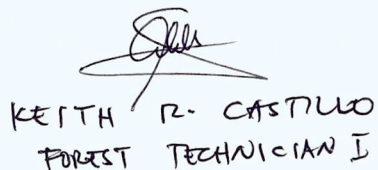 KEITH R. CASTILLO
FOREST TECHNICIAN I